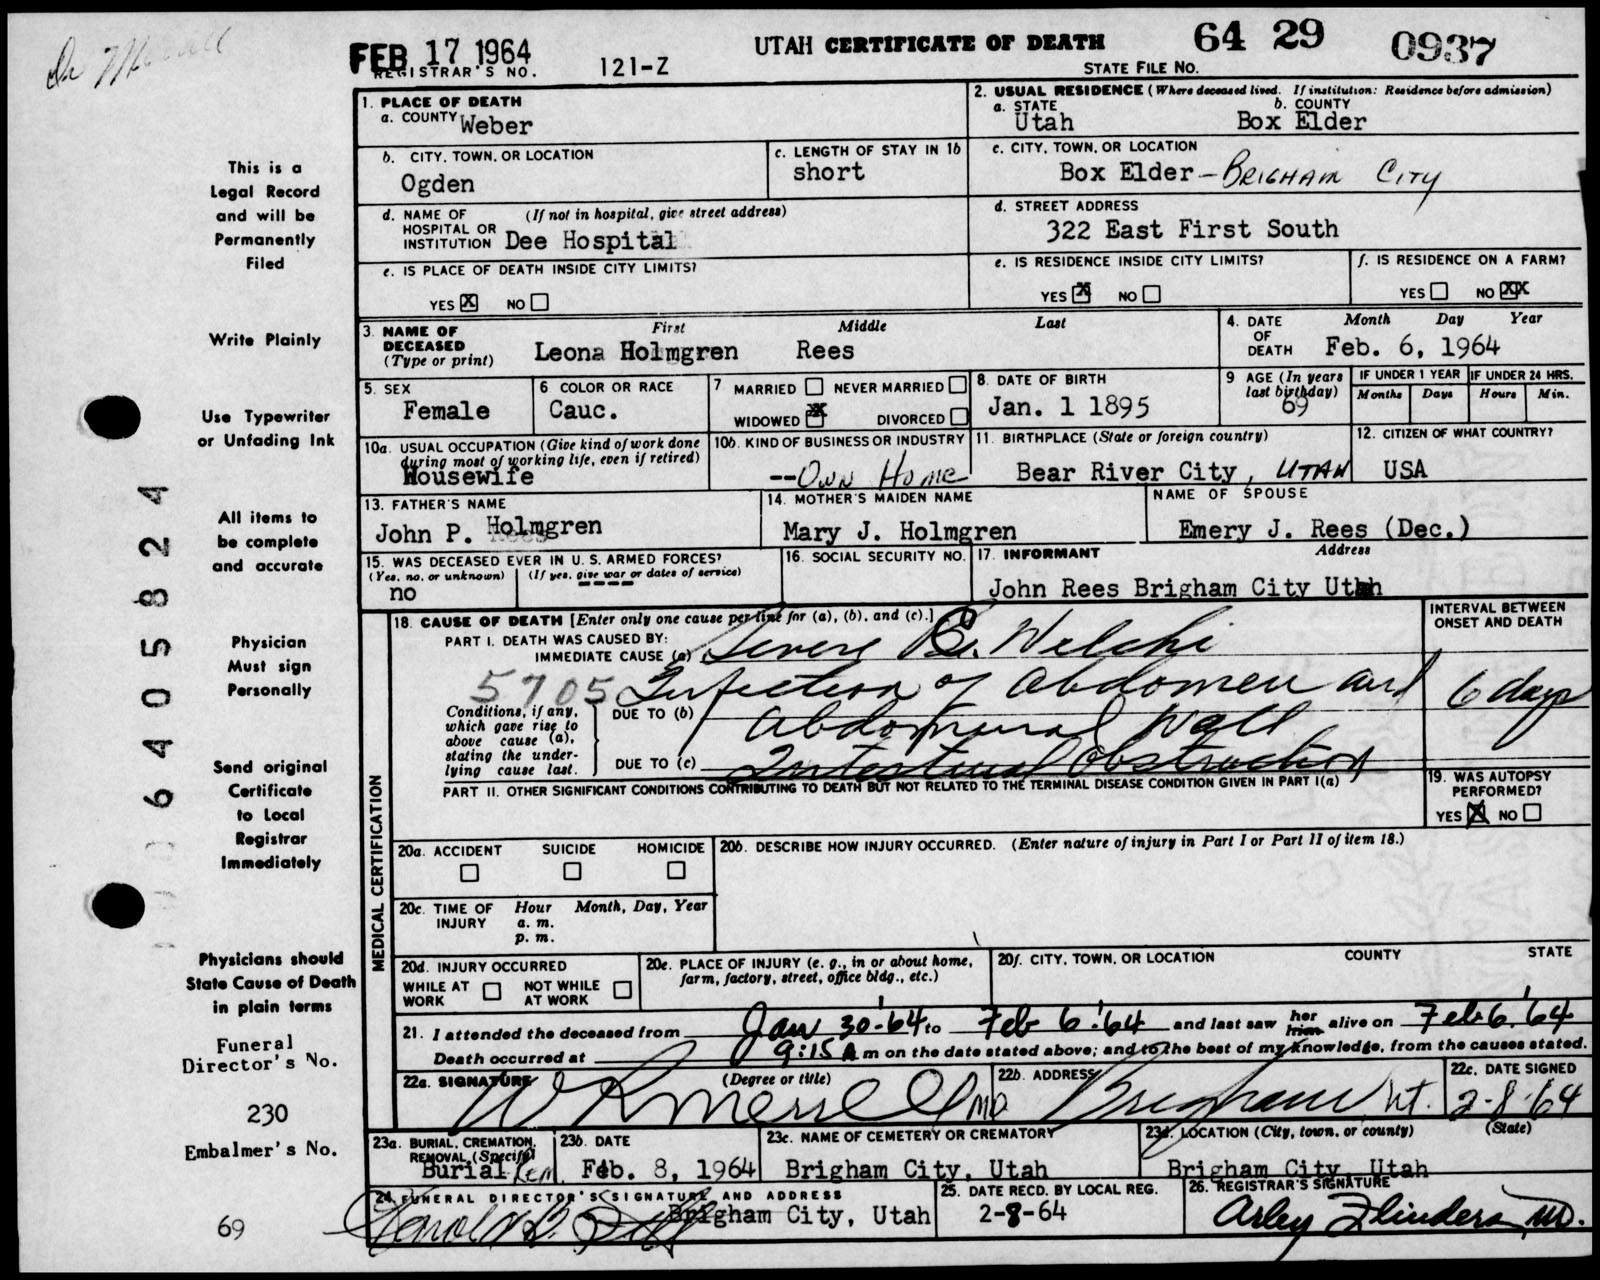 FEB 17 1964
UTAH CERTIFICATE OF DEATH
64 29 0937
REGISTRAR'S NO. 121-Z
STATE FILE NO.
1. PLACE OF DEATH
a. COUNTY Weber
2. USUAL RESIDENCE (Where deceased lived. If institution: Residence before admission)
a. STATE Utah
b. COUNTY Box Elder
b. CITY, TOWN, OR LOCATION
Ogden
c. LENGTH OF STAY IN 1b
short
c. CITY, TOWN, OR LOCATION
Box Elder - BRIGHAM CITY
d. NAME OF HOSPITAL OR INSTITUTION (If not in hospital, give street address)
Dee Hospital
d. STREET ADDRESS
322 East First South
e. IS PLACE OF DEATH INSIDE CITY LIMITS?
YES X NO
e. IS RESIDENCE INSIDE CITY LIMITS?
YES X NO
f. IS RESIDENCE ON A FARM?
YES NO XX
3. NAME OF DECEASED (Type or print)
First Middle Last
Leona Holmgren Rees
4. DATE OF DEATH
Month Day Year
Feb. 6, 1964
5. SEX
Female
6 COLOR OR RACE
Cauc.
7 MARRIED NEVER MARRIED
WIDOWED X DIVORCED
8. DATE OF BIRTH
Jan. 1 1895
9 AGE (In years last birthday)
69
IF UNDER 1 YEAR IF UNDER 24 HRS.
Months Days Hours Min.
10a. USUAL OCCUPATION (Give kind of work done during most of working life, even if retired)
Housewife
10b. KIND OF BUSINESS OR INDUSTRY
--OWN HOME
11. BIRTHPLACE (State or foreign country)
Bear River City, UTAH
12. CITIZEN OF WHAT COUNTRY?
USA
13. FATHER'S NAME
John P. Holmgren
14. MOTHER'S MAIDEN NAME
Mary J. Holmgren
NAME OF SPOUSE
Emery J. Rees (Dec.)
15. WAS DECEASED EVER IN U. S. ARMED FORCES?
(Yes, no, or unknown) (If yes, give war or dates of service)
no
16. SOCIAL SECURITY NO.
17. INFORMANT Address
John Rees Brigham City Utah
18. CAUSE OF DEATH [Enter only one cause per line for (a), (b), and (c).]
INTERVAL BETWEEN ONSET AND DEATH
PART I. DEATH WAS CAUSED BY:
IMMEDIATE CAUSE (a) Severe B. Welchi
5705 Infection of abdomen and
6 days
Conditions, if any, which gave rise to above cause (a), stating the underlying cause last.
DUE TO (b) abdominal wall
DUE TO (c) Intestinal Obstruction
PART II. OTHER SIGNIFICANT CONDITIONS CONTRIBUTING TO DEATH BUT NOT RELATED TO THE TERMINAL DISEASE CONDITION GIVEN IN PART I(a)
19. WAS AUTOPSY PERFORMED?
YES X NO
MEDICAL CERTIFICATION
20a. ACCIDENT SUICIDE HOMICIDE
20b. DESCRIBE HOW INJURY OCCURRED. (Enter nature of injury in Part I or Part II of item 18.)
20c. TIME OF INJURY
Hour Month, Day, Year
a. m.
p. m.
20d. INJURY OCCURRED
WHILE AT WORK NOT WHILE AT WORK
20e. PLACE OF INJURY (e. g., in or about home, farm, factory, street, office bldg., etc.)
20f. CITY, TOWN, OR LOCATION COUNTY STATE
21. I attended the deceased from Jan 30-'64 to Feb 6-'64 and last saw her him alive on Feb 6, '64
Death occurred at 9:15 A m on the date stated above; and to the best of my knowledge, from the causes stated.
22a. SIGNATURE (Degree or title)
W R Merrell MD
22b. ADDRESS
Brigham, Ut.
22c. DATE SIGNED
2-8-64
23a. BURIAL, CREMATION, REMOVAL (Specify)
Burial Rem
23b. DATE
Feb. 8, 1964
23c. NAME OF CEMETERY OR CREMATORY
Brigham City, Utah
23d. LOCATION (City, town, or county) (State)
Brigham City, Utah
24. FUNERAL DIRECTOR'S SIGNATURE AND ADDRESS
Harold B.
Brigham City, Utah
25. DATE RECD. BY LOCAL REG.
2-8-64
26. REGISTRAR'S SIGNATURE
Arley Flinders, MD.
This is a
Legal Record
and will be
Permanently
Filed
Write Plainly
Use Typewriter
or Unfading Ink
All items to
be complete
and accurate
Physician
Must sign
Personally
Send original
Certificate
to Local
Registrar
Immediately
Physicians should
State Cause of Death
in plain terms
Funeral
Director's No.
230
Embalmer's No.
69
6405824